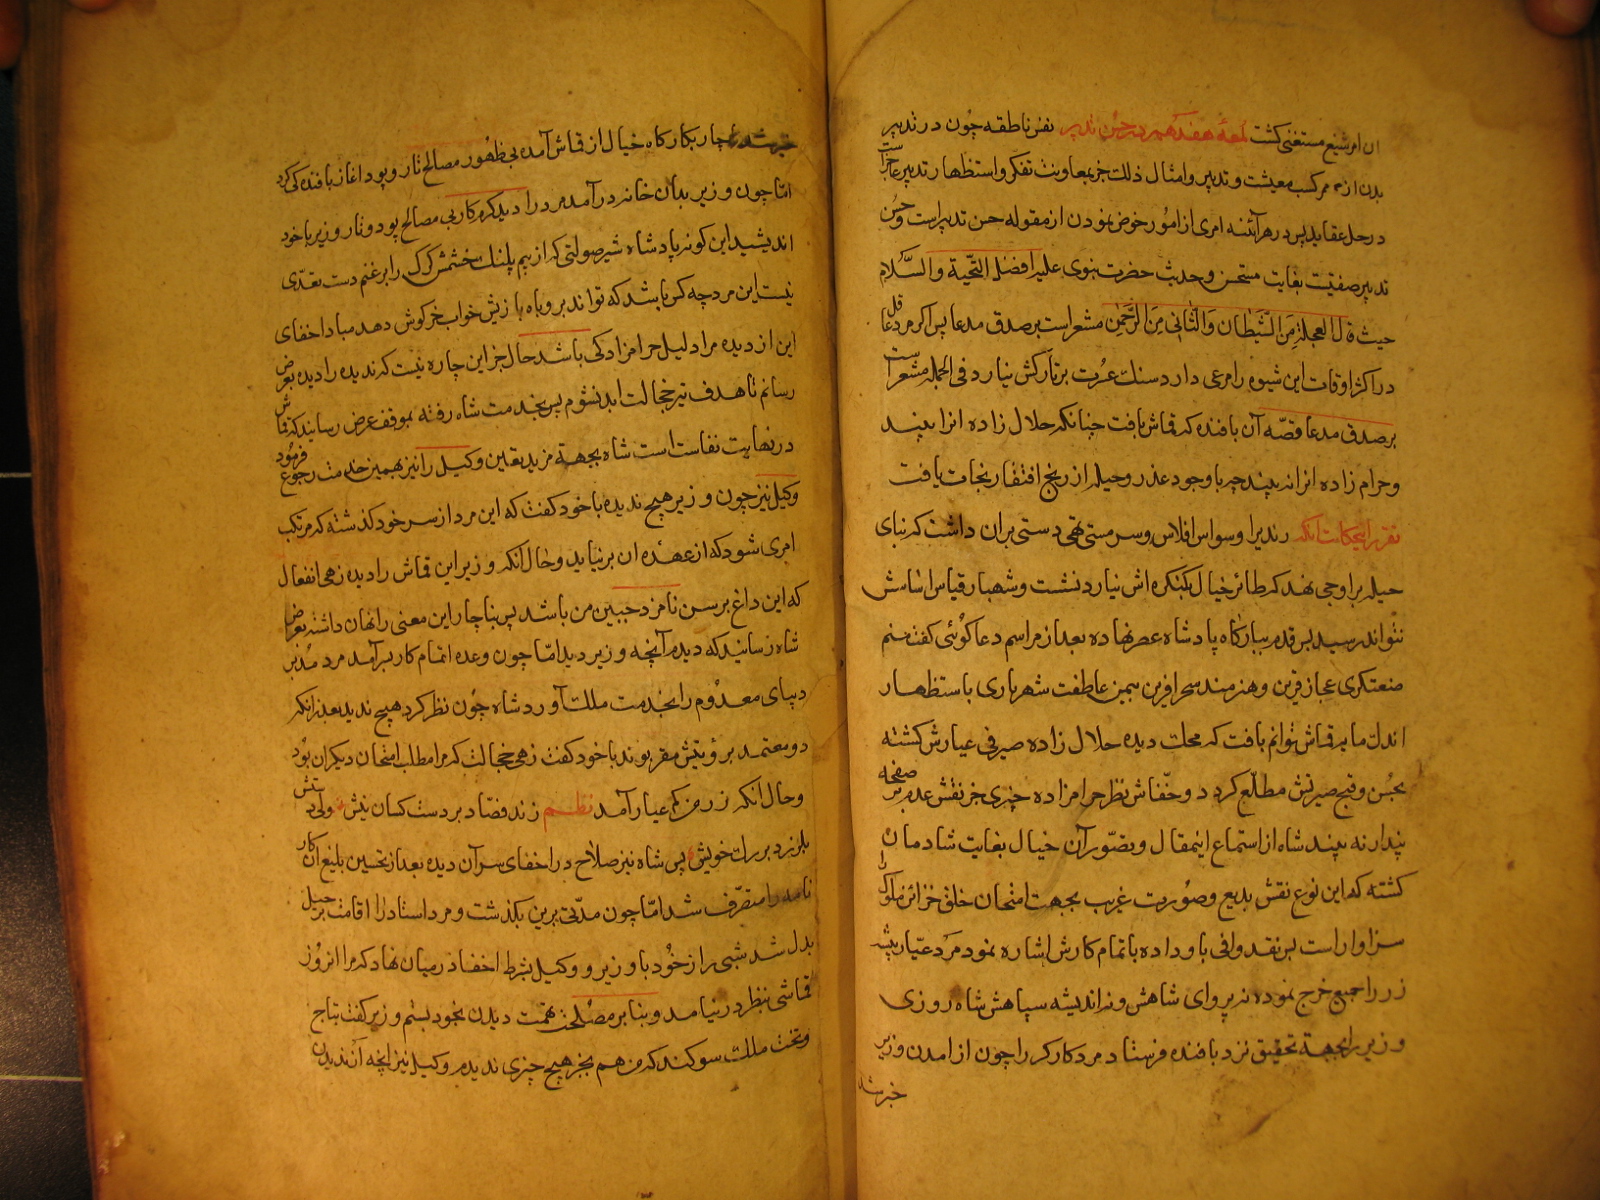 ان امر شنیع مستغنی کشت لمعهٔ هفدهم در حسن تدبیر نفس ناطقه چون در تدبیر
بدن از ممر کسب معیشت و تدبیر و امثال ذلک جز بمعاونت تفکر و استظهار تدبیر عاجز است
در حل عقاید پس در هر آئنه امری از امور خوض نمودن از مقوله حسن تدبیر است و حسن
تدبیر صفتیست بغایت مستحسن و حدیث حضرت نبوی علیه افضل التحیة والسلام
حیث قال العجلة من الشیطان والتانی من الرحمن مشعر است بر صدق مدعا پس اکر مرد عاقل
در اکثر اوقات این شیوه را مرعی دارد سنک عزت بر تارکش نیارد فی الجمله مشعر است
بر صدق مدعا قصه آن بافنده که قماش بافت چنانکه حلال زاده انرا بیند
و حرام زاده انرا نه بیند چه با وجود عذر و حیله از رنج افتقار نجات یافت
تقریر اینحکایت انکه رندیرا وسواس افلاس و سرمستی تهی دستی بران داشت که بنای
حیله بر اوجی نهد که طائر خیال بکنکره اش نیارد نشست و شهباز قیاس اساسش
نتواند رسید پس قدم ببارکاه پادشاه عصر نهاده بعد از مراسم دعا کوئی کفت منم
صنعتکری اعجاز قرین و هنرمند سحر افرین بیمن عاطفت شهریاری باستظهار
اندک مایه قماش توانم بافت که محک دیده حلال زاده صیرفی عیارش کشته
بحسن و قبح صیرتش مطلع کردد و خفاش نظر حرامزاده چیزی جز نقش عدم بر صفحه
پندار نه بیند شاه از استماع اینمقال و تصور آن خیال بغایت شادمان
کشته که این نوع نقش بدیع و صورت غریب بجهت امتحان خلق خزائن ملوک را
سزاوار است پس نقد وافی باو داده باتمام کارش اشاره نمود مرد عیار پیشه
زر را جمیع خرج نموده نه پروای شاهش و نه اندیشه سپاهش شاه روزی
وزیر را بجهة تحقیق نزد بافنده فرستاد مرد کارکر را چون از امدن وزیر
خبر شد
خبر شد ناچار بکارکاه خیال از قماش آمده بی ظهور مصالح تار و پود اغاز بافندکی کرد
امّا چون وزیر بدان خانه درآمد مرد را دید کرم کار بی مصالح پود و تار وزیر با خود
اندیشید این کونه پادشاه شیر صولتی که از بیم پلنک خشمش کرک را بر غنم دست تعدّی
نیست این مرد چه کس باشد که تواند بروباه بازیش خواب خرکوش دهد مبادا اخفای
این از دیده مرا دلیل حرامزادکی باشد حال جز این چاره نیست که ندیده را دیده بعرض
رسانم تا هدف تیر خجالت ابد نشوم پس بخدمت شاه رفته بموقف عرض رسانید که قماش
در نهایت نفاست است شاه بجهة مزید یقین وکیل را نیز بهمین خدمت رجوع فرمود
وکیل نیز چون وزیر هیچ ندیده با خود کفت که این مرد از سر خود کذشته که مرتکب
امری شود که از عهده ان بر نیاید و حال انکه وزیر این قماش را دیده زهی انفعال
که این داغ بر سن نامزد جبین من باشد پس بناچار این معنی را نهان داشته بعرض
شاه رسانید که دیدم آنچه وزیر دید امّا چون وعده اتمام کار برآمد مرد مدبر
دیبای معدوم را بخدمت ملک آورد شاه چون نظر کرد هیچ ندید بعد از انکه
دو معتمد برؤیتش مقر بوند با خود کفت زهی خجالت که مرا مطلب امتحان دیکران بود
و حال انکه زر من کم عیار آمد نظم زند فصاد بر دست کسان نیش ولی دستش
بلرزد بر رک خویش پس شاه نیز صلاح در اخفای سر آن دیده بعد از تحسین بلیغ آن کار
نامه را متصرّف شد امّا چون مدّتی برین بکذشت و مرد استاد را اقامت برحیل
بدل شد شبی راز خود با وزیر و وکیل بشرط اخفا در میان نهاد که مرا انروز
قماشی بنظر درنیامد و بنابر مصلحت تهمت دیدن بخود بستم وزیر کفت بتاج
و تخت ملک سوکند که من هم بجز هیچ چیزی ندیدم وکیل نیز انچه آن ندیدن